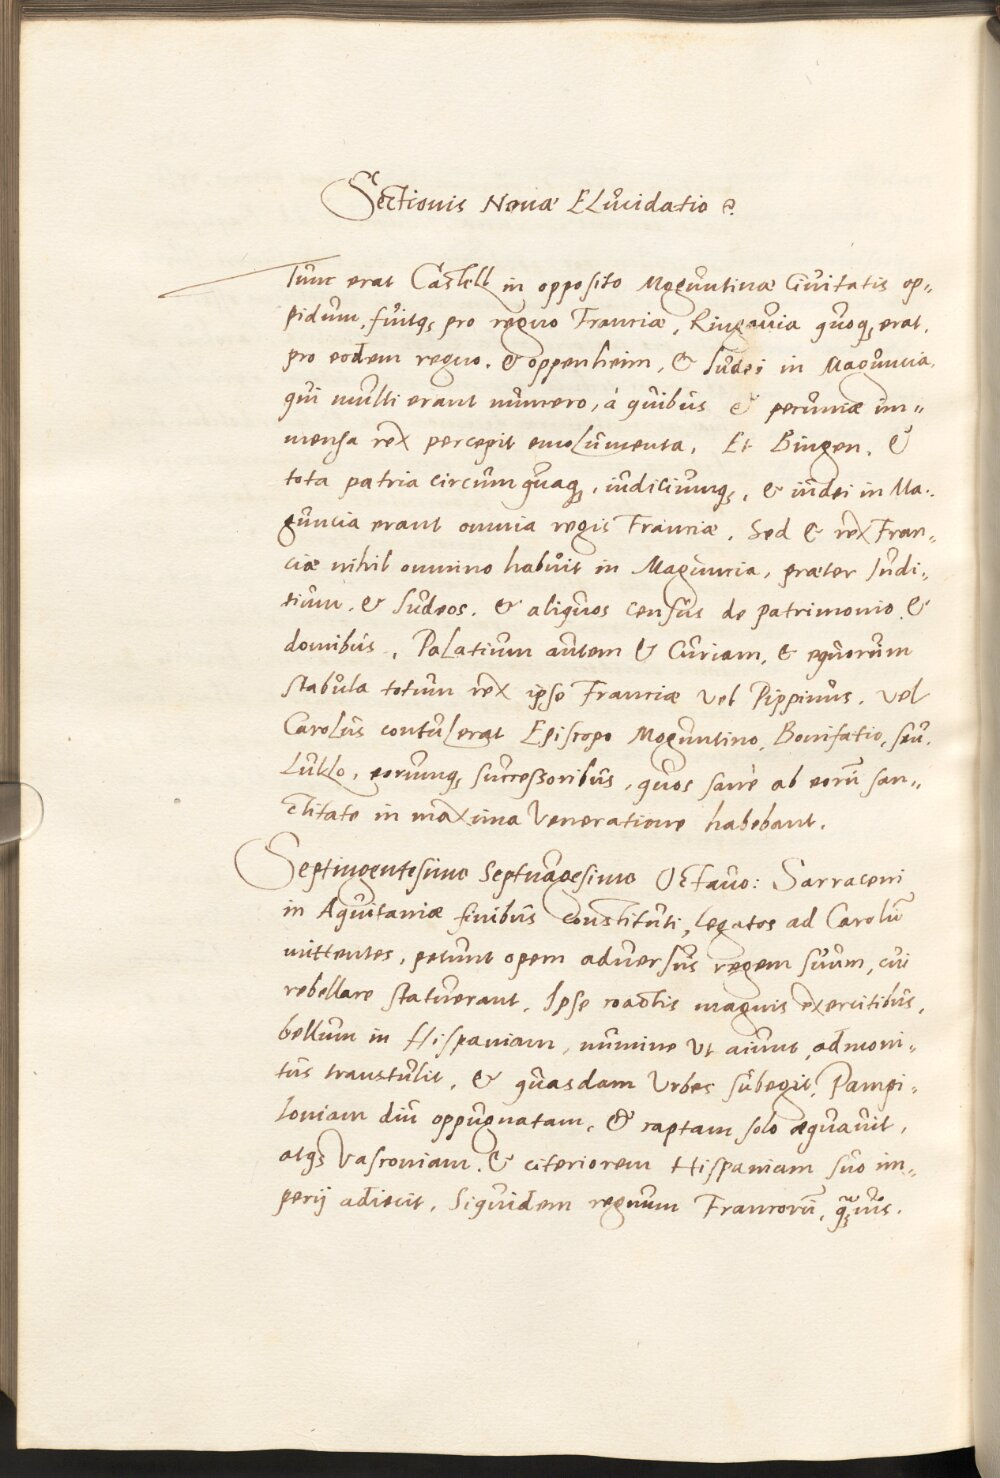 Sectionis Nonæ Elucidatio
Tunc erat Castell in opposito Moguntinæ Ciuitatis op„
pidum, fuitq; pro regno Franciæ, Ringauia quoq; erat,
pro eodem regno. & oppenheim, & Iudei in Maguncia,
qui multi erant numero, à quibus & pecuniæ im„
mensa rex percepit emolumenta. Et Bingen. &
tota patria circumquaq;, iudiciumq;, & iudei in Ma„
guncia erant omnia regis Franciæ. Sed & rex Fran„
ciæ nihil omnino habuit in Maguncia, præter Iudi„
tium. & Iudeos. & aliquos census de patrimonio &
domibus. Palatium autem & Curiam, & equorum
stabula totum rex ipse Franciæ vel Pippinus. vel
Carolus contulerat Episcopo Moguntino, Bonifatio, seu.
Lullo, eorumq; successoribus, quos sanè ab eorū san„
ctitate in maxima veneratione habebant.
Septingentesimo Septuagesimo Octauo: Sarraceni
in Aquitaniæ finibus constituti, legatos ad Carolū
mittentes, petunt opem aduersus regem suum, cui
rebellare statuerant. Ipse coactis magnis exercitibus,
bellum in Hispaniam, numine vt aiunt, admoni„
tus transtulit, & quasdam vrbes subegit, Pampi„
loniam diu oppugnatam, & captam solo æquauit,
atq; Vasconiam. & citeriorem Hispaniam suo im„
perij adiecit. Siquidem regnum Francorū, q̃;uis.